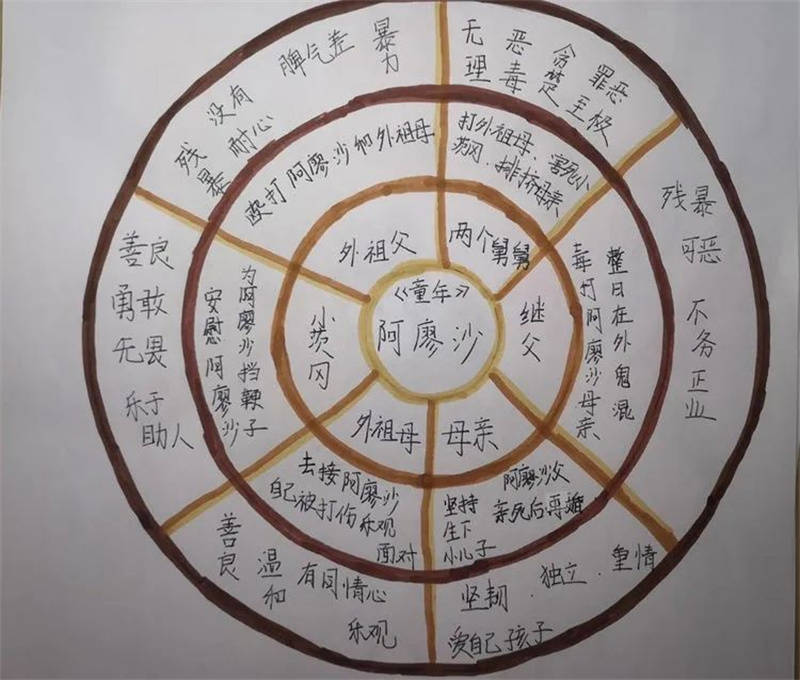 《童年》
阿廖沙
外祖父
殴打阿廖沙和外祖母
残暴
没有
耐心
脾气差
暴力
两个舅舅
打外祖母、害死小
茨冈、排挤母亲
无理
恶毒
贪婪
罪恶
至极
继父
整日在外鬼混
毒打阿廖沙母亲
残暴
可恶
不务正业
母亲
阿廖沙父
亲死后再婚
坚持
生下
小儿子
坚韧．独立．重情
爱自己孩子
外祖母
去接阿廖沙
自己被打伤 乐观
面对
善良
温和
有同情心
乐观
小茨冈
为阿廖沙挡鞭子
安慰阿廖沙
善良
勇敢
无畏
乐于
助人